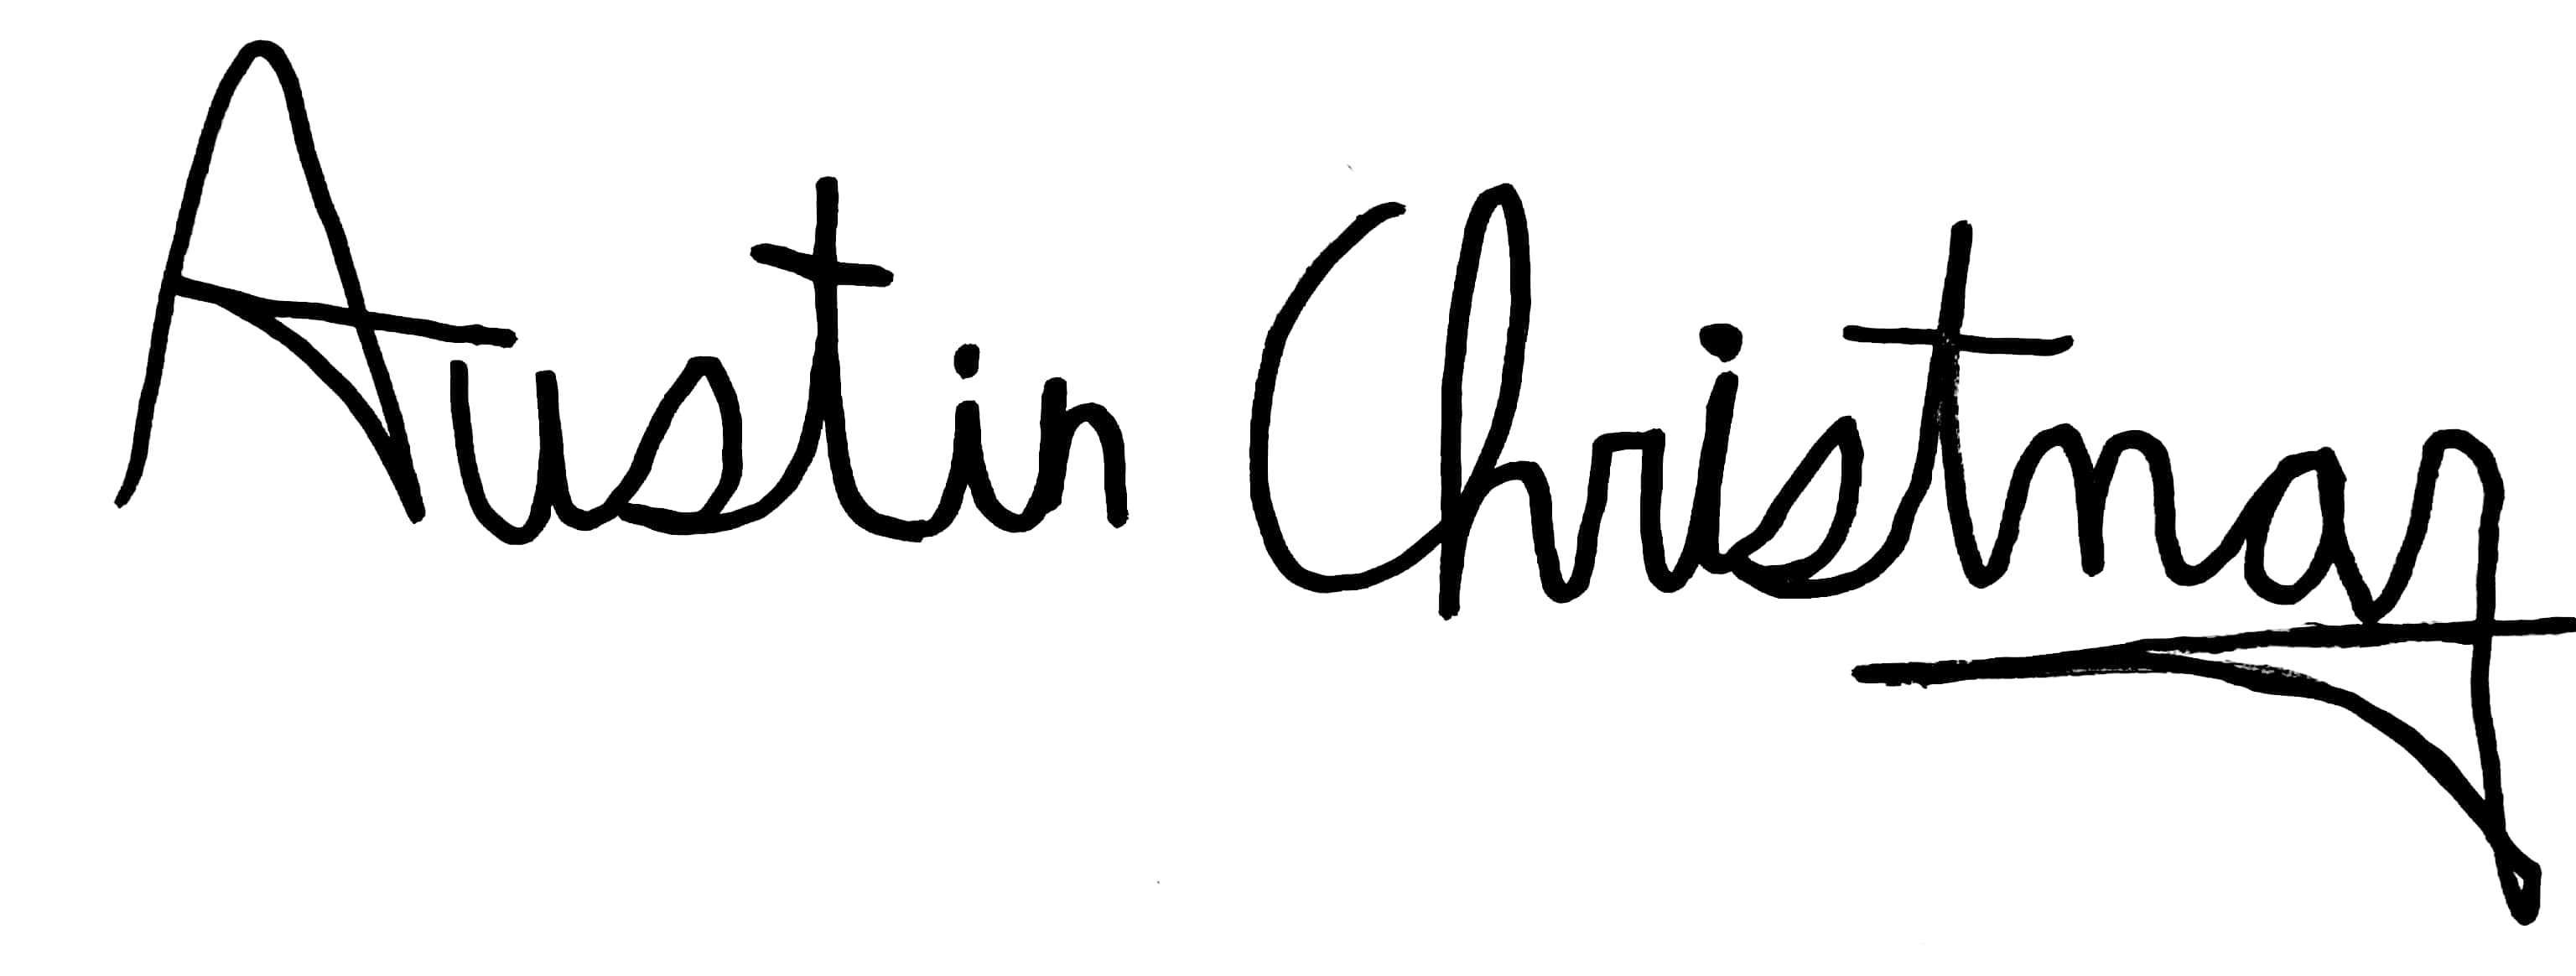 Austin Christmas